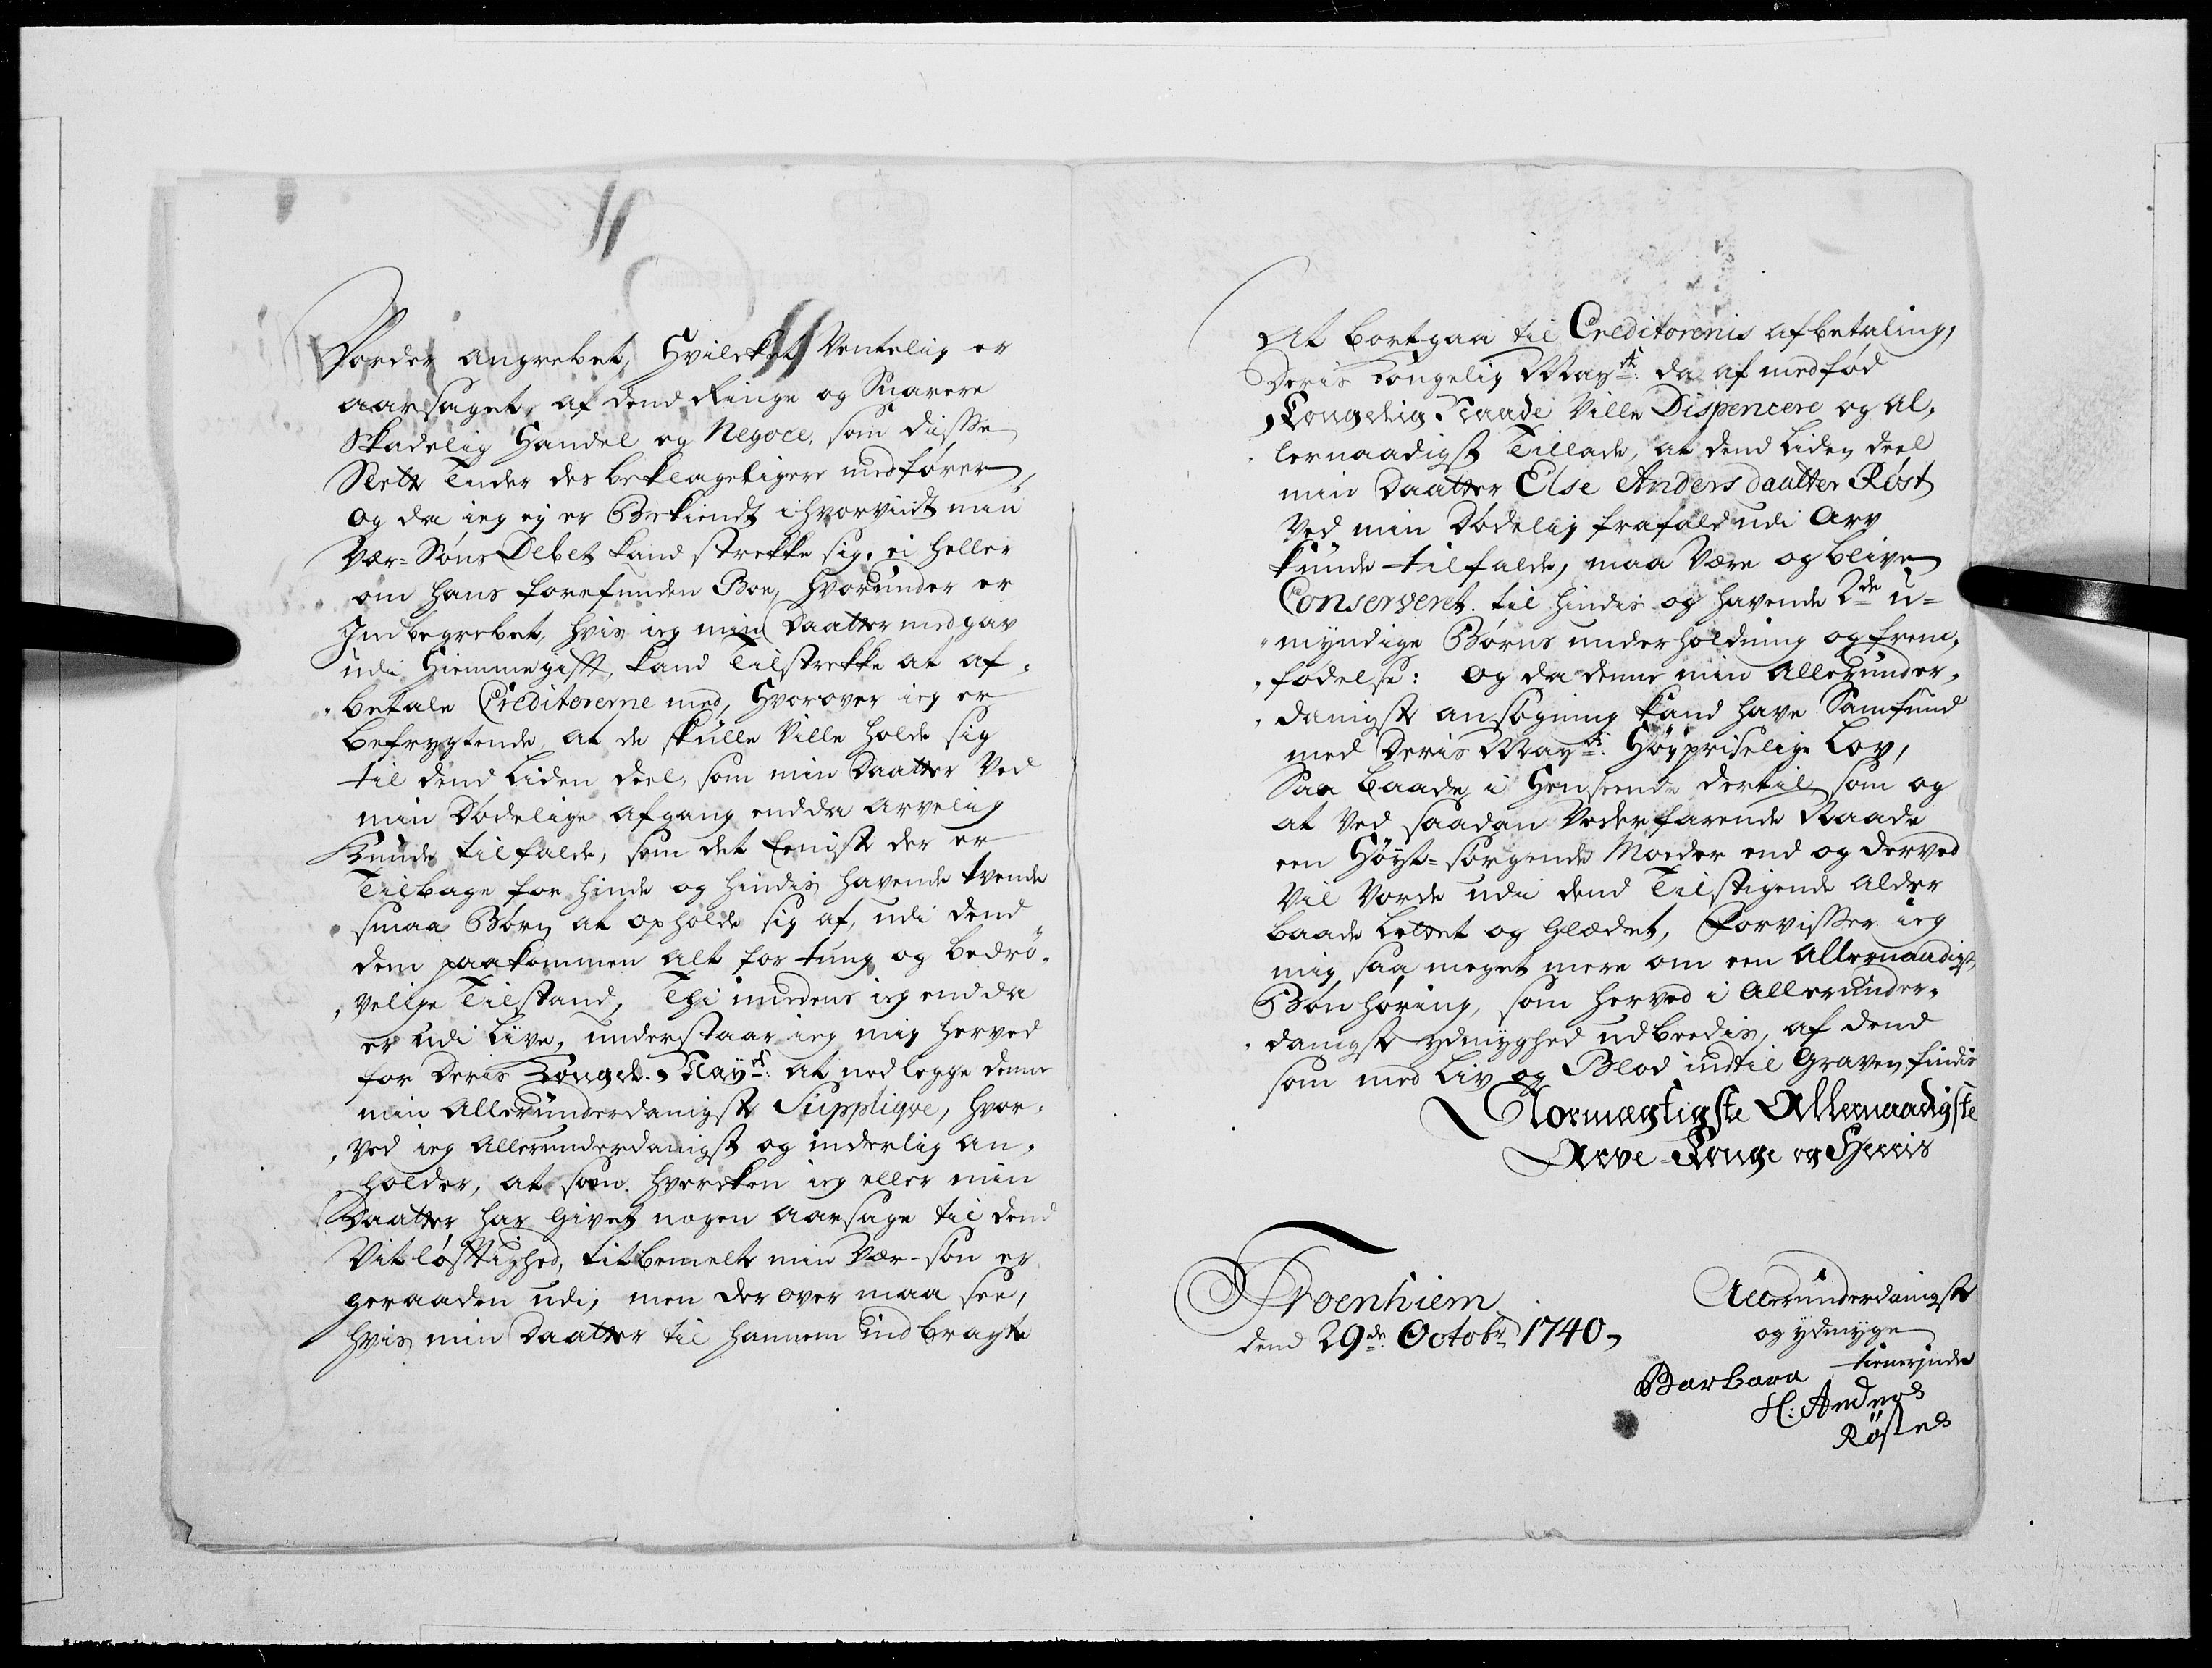 Vorder angrebet, Hvilcket Ventelig er
aarsaget, af dend Ringe og Snarere
Skadelig Handel og Negoce, som disse
Slette Tider des beklageligere medfører,
og da ieg ej er Bekiendt i hvorvidt min
Vær-Søns Debet kand strekke sig, ei heller
om hans forefunden Boe, hvorunder er
Indbegrebet, hvis ieg min Daatter medgav
udi Hiemmegifft, kand Tilstrekke at af-
betale Creditorerne med, Hvorover ieg er
befrygtende, at de skulle Ville holde sig
til dend liden deel, som min Daatter Ved
min Dødelige afgang endda arvelig
Kunde tilfalde, som det Eeniste der er
Tilbage for hinde og hindis havende tvende
smaa Børn at opholde sig af, udi dend
dem paakommen alt for tung og bedrø-
velige Tilstand, Thi imedens ieg endda
er udi Live, understaar ieg mig herved
for Deris Kongel. Mayst: at nedlegge denne
min Allerunderdanigste Supplique, hvor-
ved ieg Allerunderdanigst og inderlig an-
holder, at som hvercken ieg eller min
Daatter har Givet nogen aarsage til dend
Vitløfftighed, titbemelte min Vær-søn er
geraaden udi, men derover maa see,
hvis min Daatter til hannem indbragte
At bortgaa til Creditorenis afbetaling,
Deris Kongelig Mayst: da af medfød
Kongelig Naade Ville Dispencere og al-
lernaadigst Tillade, at dend liden deel
min Daatter Else Andersdaatter Røst
Ved min Dødelig frafald udi Arv
kunde tilfalde, maa Være og blive
Conservert til hindis og havende 2de u-
myndige Børns underholdning og frem-
fødelse: Og da denne min Allerunder-
danigste ansøgning kand have Samfund
med Deris Mayst: Høypriselige Lov,
Saa baade i Henseende dertil som og
at Ved saadan Vederfarende Naade
een Høyst-sørgende Moeder end og derved
Vil Vorde udi dend Tilstigende Alder
baade Lettet og Glædet, Forvisser ieg
mig saa meget mere om een Allernaadigst
Bønhøring, som herved i Allerunder-
danigste ydmyghed udbeedis, af dend
som med Liv og Blod indtil Graven findis
Stormægtigste Allernaadigste
Arve-Konge og Herris
Troenhiem
dend 29de Octobr 1740,
Allerunderdanigste
og ydmyge
tienerinde
Barbara
H: Anders
Røstes